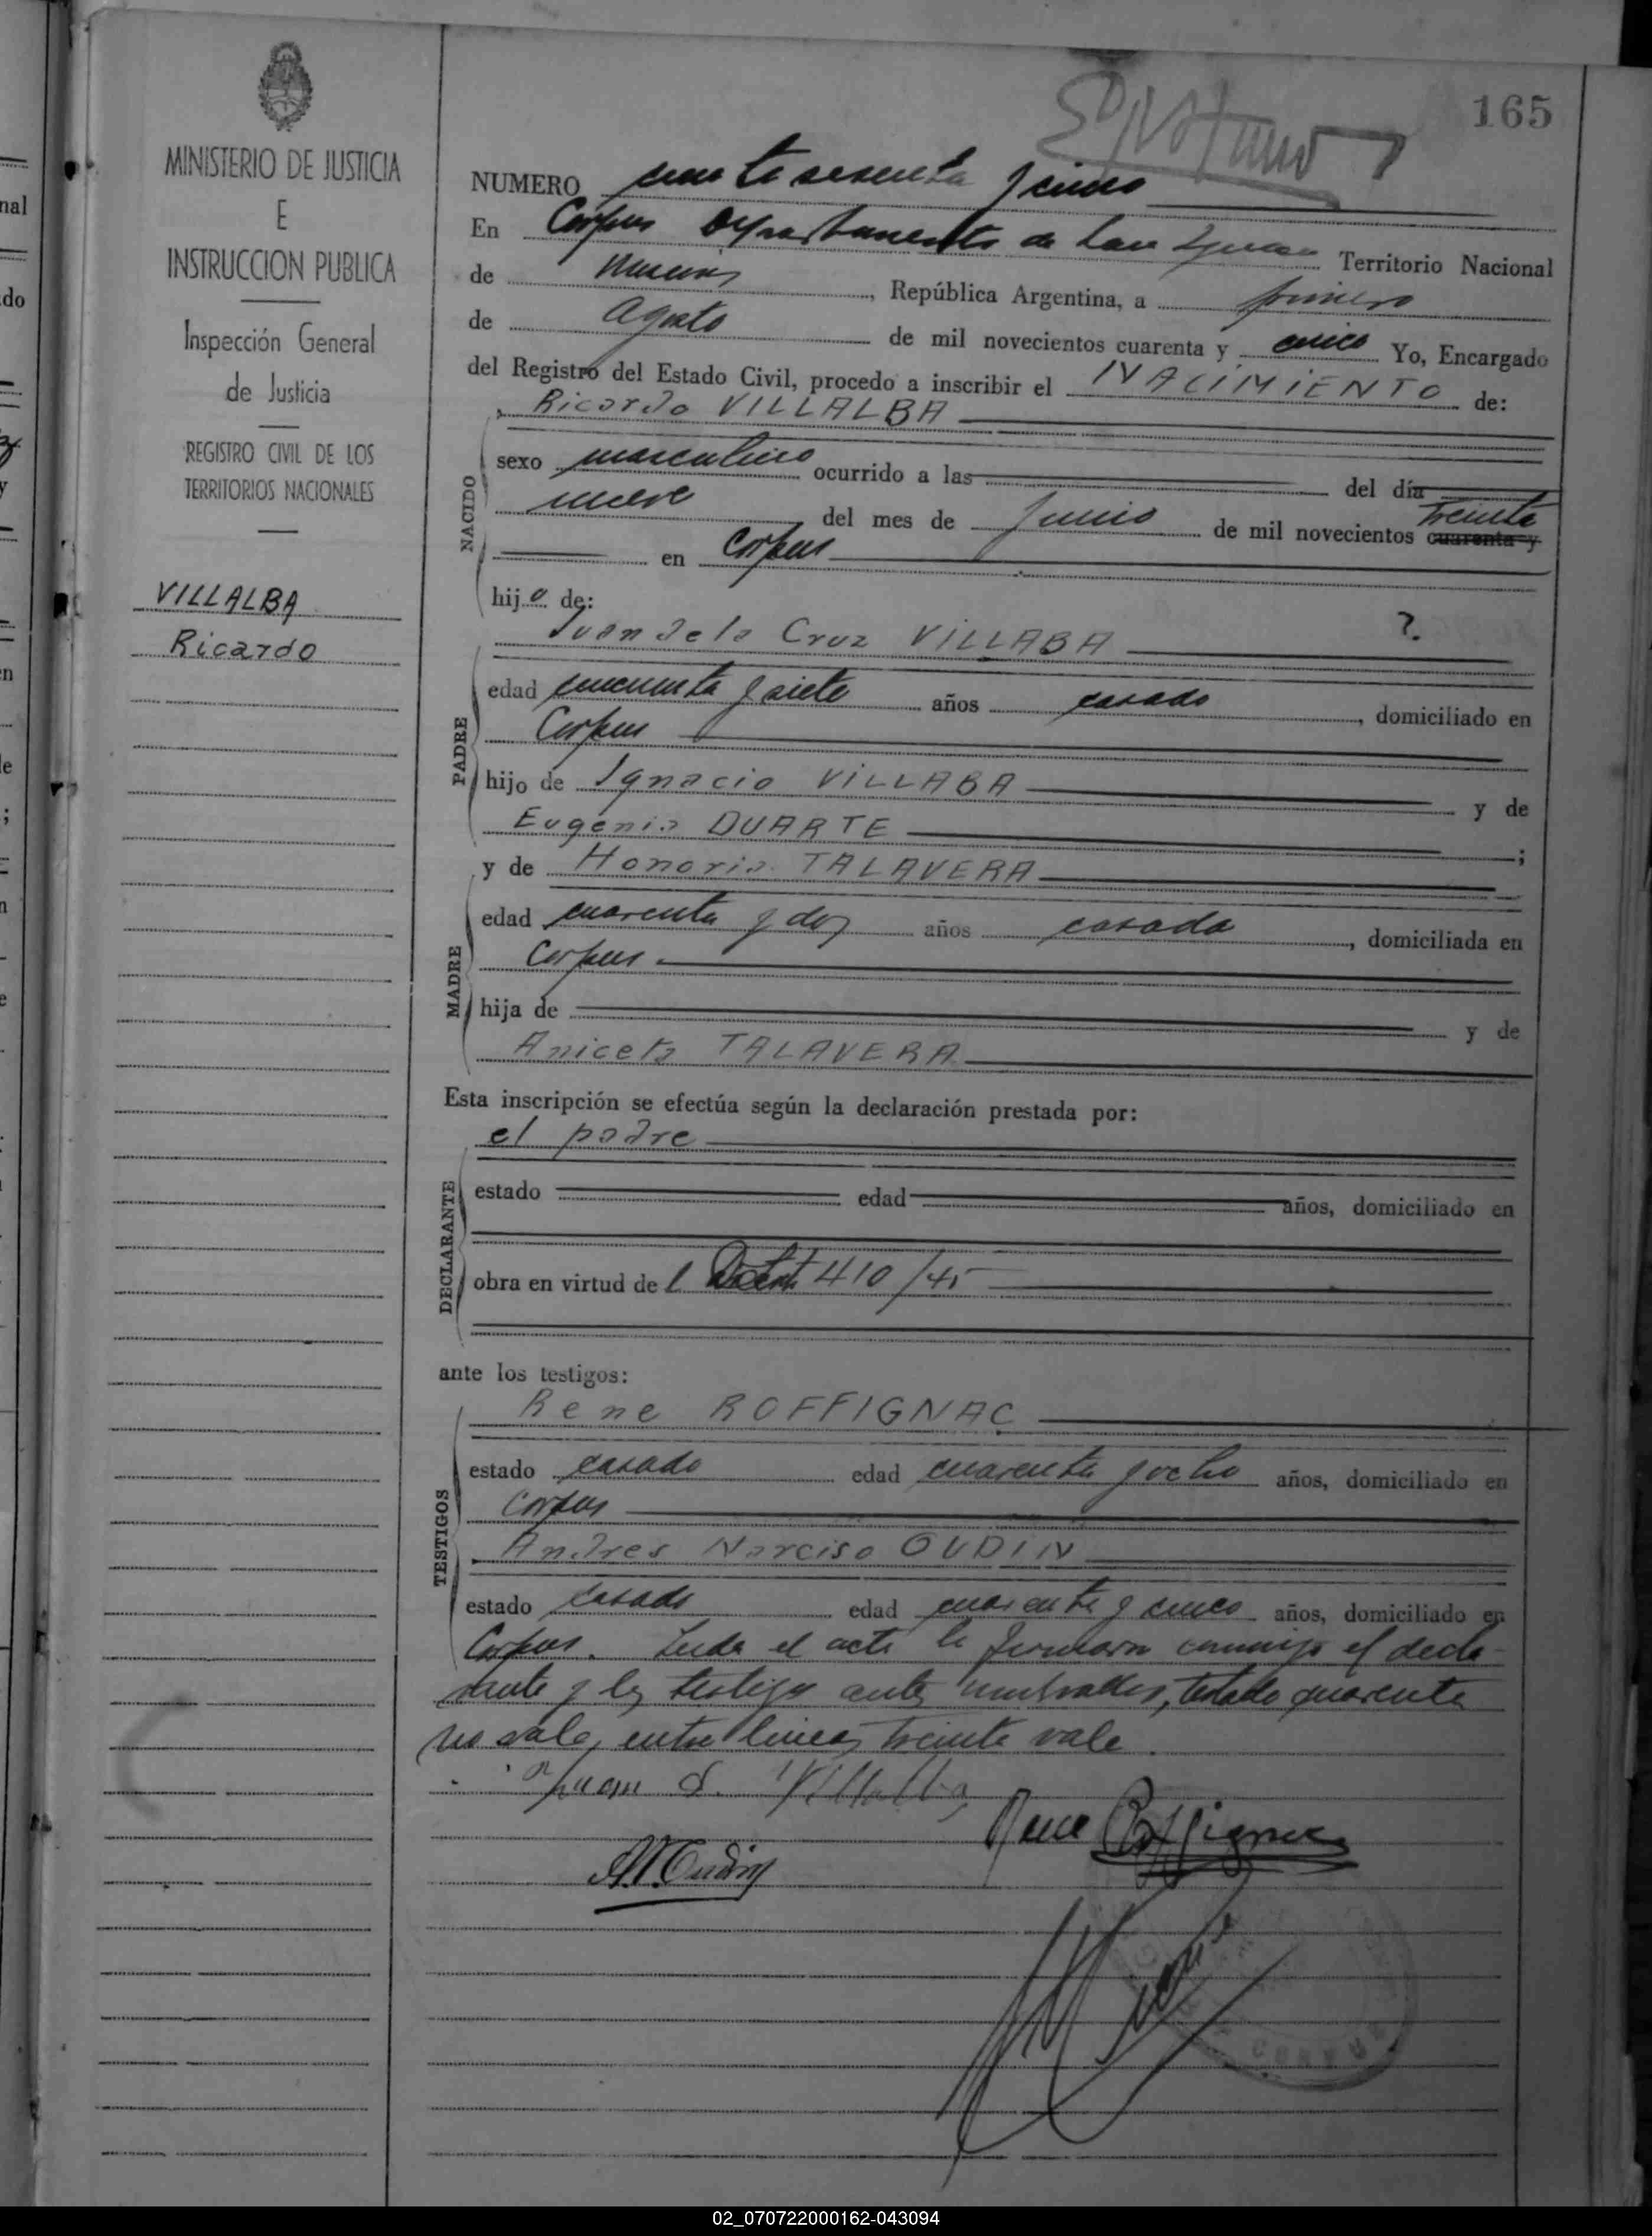 165
MINISTERIO DE JUSTICIA
E
INSTRUCCION PUBLICA
Inspección General
de Justicia
REGISTRO CIVIL DE LOS
TERRITORIOS NACIONALES
VILLALBA
Ricardo
NUMERO ciento sesenta y cinco
En Corpus Departamento de San Ignacio Territorio Nacional
de Misiones, República Argentina, a primero
de Agosto de mil novecientos cuarenta y cinco Yo, Encargado
del Registro del Estado Civil, procedo a inscribir el NACIMIENTO de:
Ricardo VILLALBA
NACIDO
sexo masculino ocurrido a las del día
nueve del mes de Junio de mil novecientos treinta cuarenta y
en Corpus
hijo de:
Juan de la Cruz VILLABA ?
PADRE
edad cincuenta y siete años casado, domiciliado en
Corpus
hijo de Ignacio VILLABA y de
Eugenia DUARTE ;
y de Honoria TALAVERA
MADRE
edad cuarenta y dos años casada, domiciliada en
Corpus
hija de y de
Aniceta TALAVERA
Esta inscripción se efectúa según la declaración prestada por:
el padre
DECLARANTE
estado edad años, domiciliado en
obra en virtud del 410/45
ante los testigos:
Rene ROFFIGNAC
TESTIGOS
estado casado edad cuarenta y ocho años, domiciliado en
Corpus
Andres Narciso OUDIN
estado casado edad cuarenta y cinco años, domiciliado en
Corpus. Leida el acta la firmaron conmigo el decla-
rante y los testigos antes nombrados, testado cuarenta
no vale, entre lineas treinta vale.
Juan d. Villalba
Rene Roffignac
A.N. Oudin
CORPUS
02_070722000162-043094